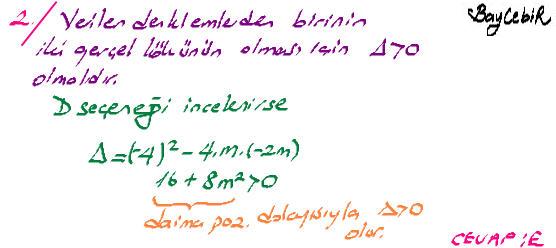 BayCebiR
2/ Verilen denklemlerden birinin
iki gerçel kökünün olması için Δ>0
olmalıdır.
D seçeneği incelenirse
Δ=(-4)² - 4.m.(-2m)
16 + 8m² > 0
daima poz. dolayısıyla Δ>0
olur.
CEVAP: E